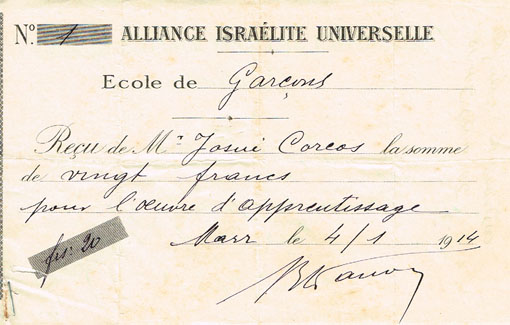 Nº 1 ALLIANCE ISRAÉLITE UNIVERSELLE
Ecole de Garçons
Reçu de Mr Josué Corcos la somme
de vingt francs
pour l'œuvre d'apprentissage
le 4/1 1914
frs: 20